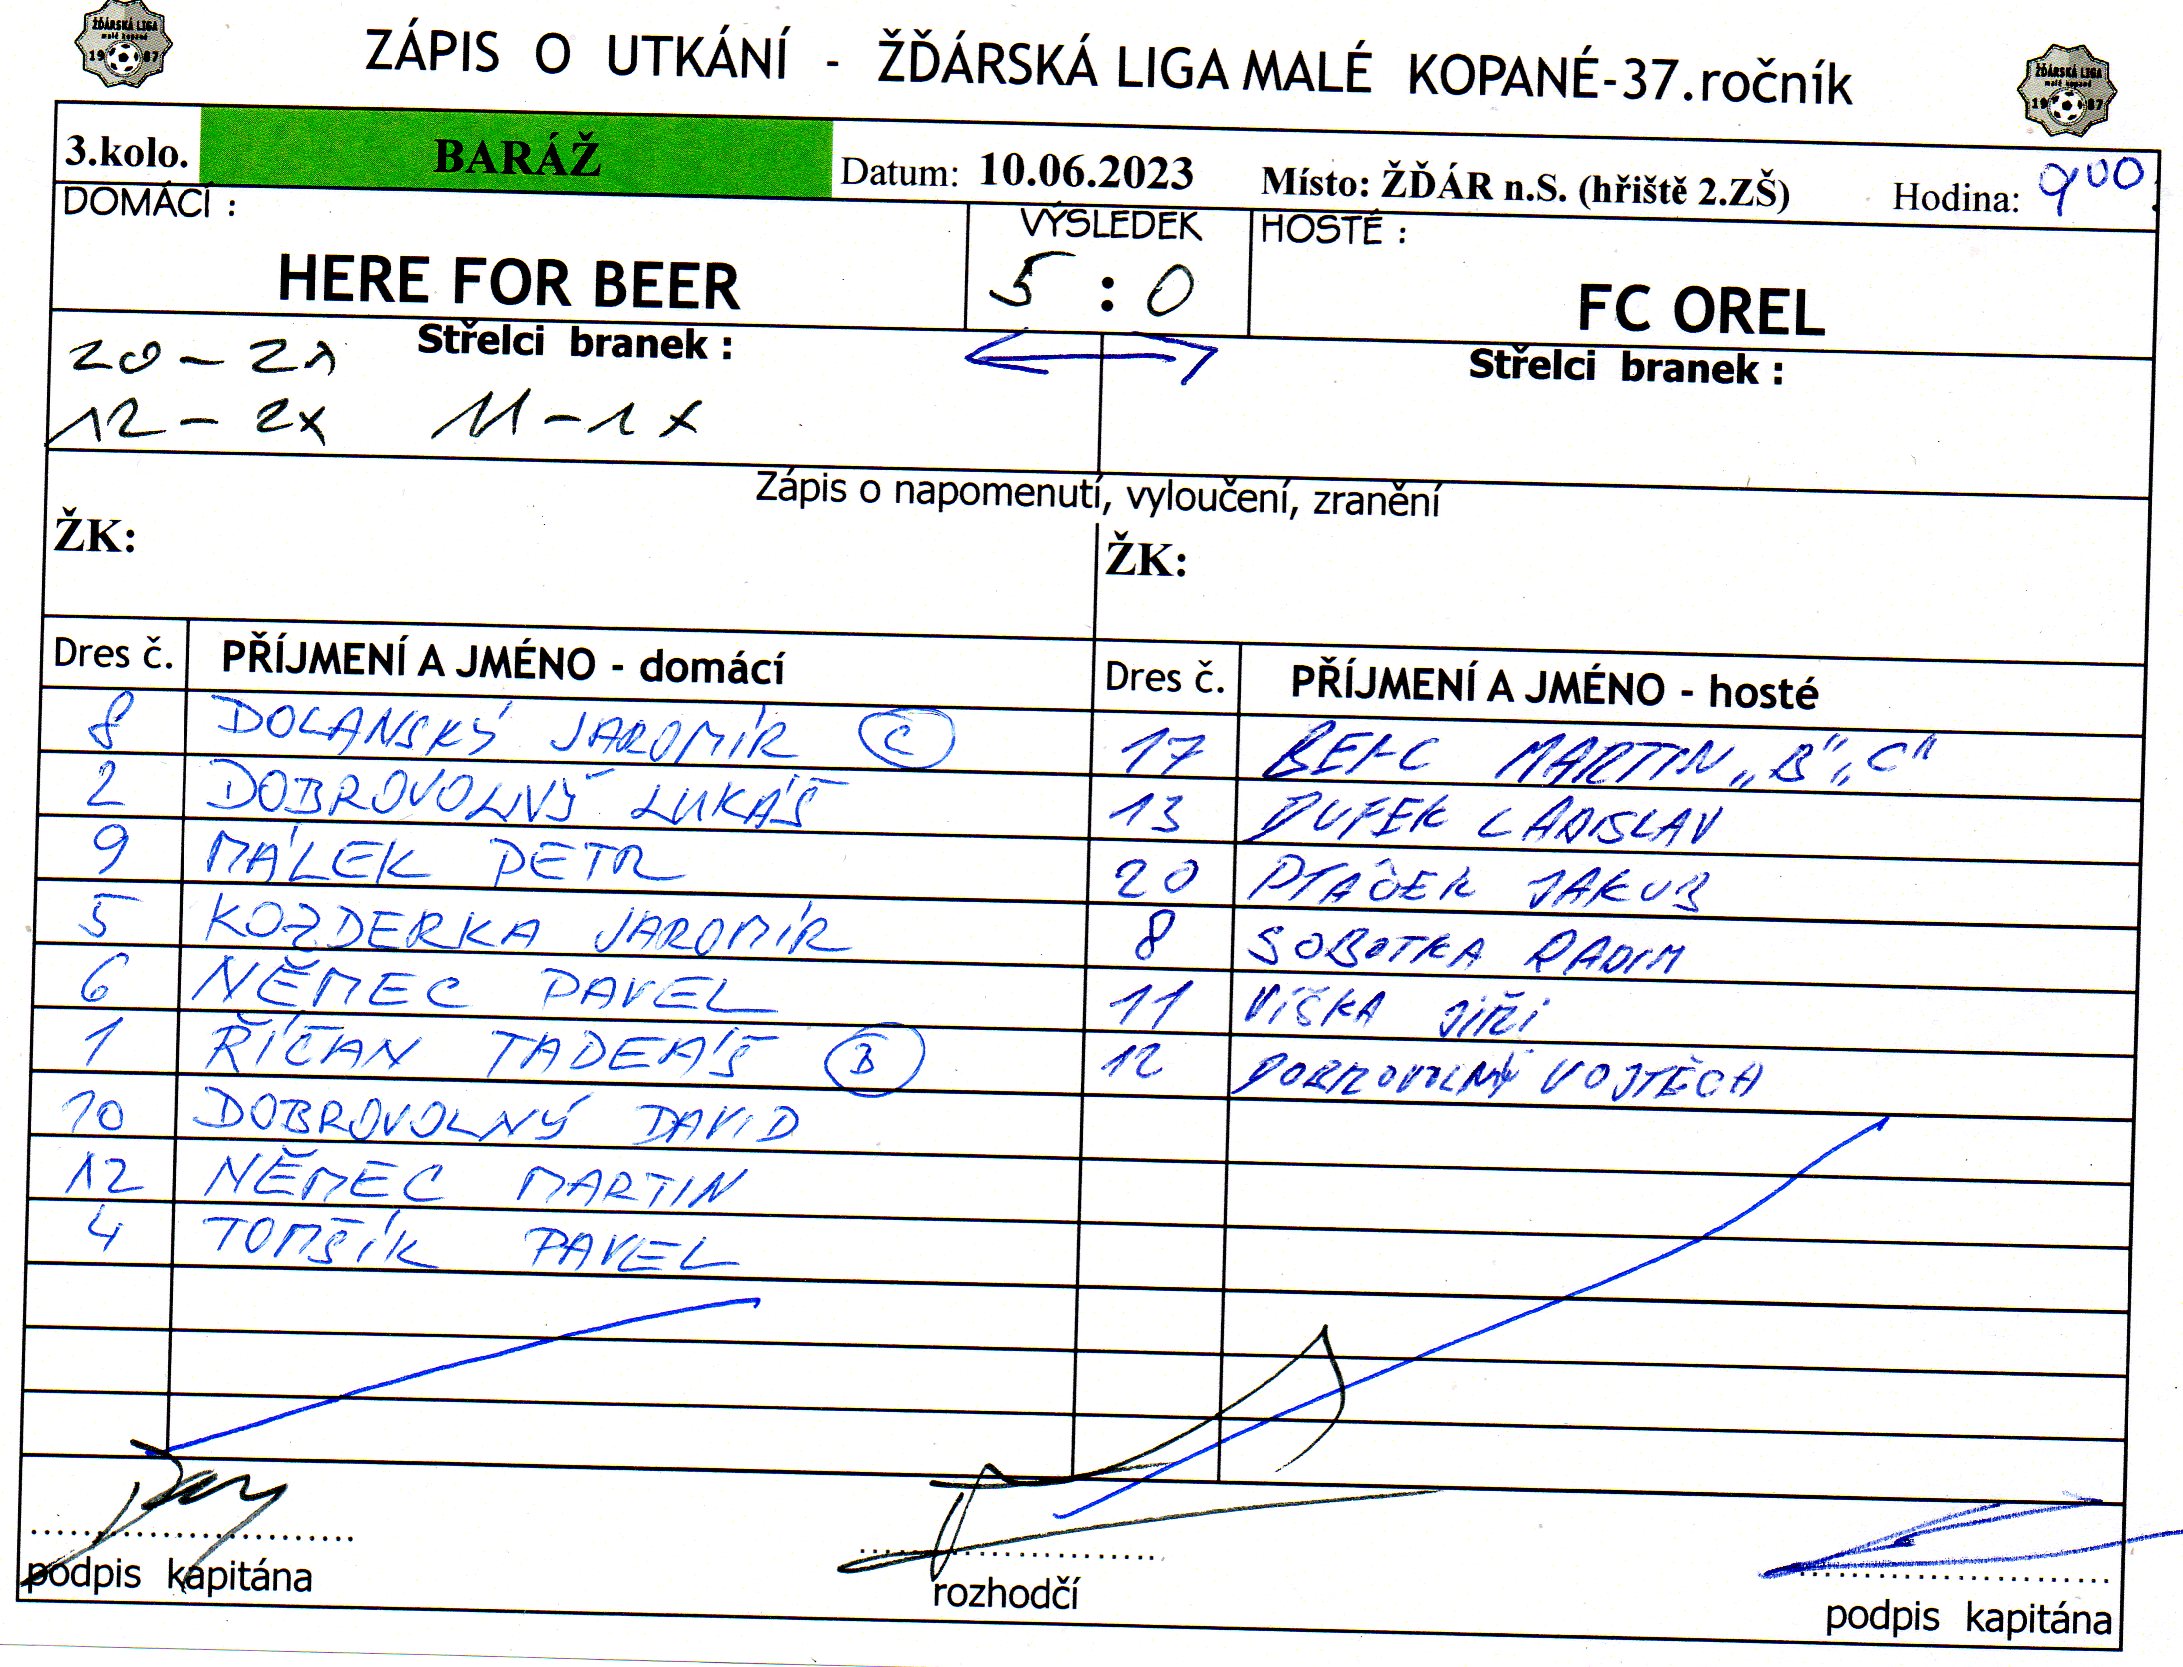 ŽĎÁRSKÁ LIGA
malé kopané
19 87
ZÁPIS O UTKÁNÍ - ŽĎÁRSKÁ LIGA MALÉ KOPANÉ-37.ročník
ŽĎÁRSKÁ LIGA
malé kopané
19 87
3.kolo. BARÁŽ Datum: 10.06.2023 Místo: ŽĎÁR n.S. (hřiště 2.ZŠ) Hodina: 9 00
DOMÁCÍ : VÝSLEDEK HOSTÉ :
HERE FOR BEER 5 : 0 FC OREL
Střelci branek : Střelci branek :
20 - 2x
12 - 2x 11 - 1x
Zápis o napomenutí, vyloučení, zranění
ŽK: ŽK:
Dres č. PŘÍJMENÍ A JMÉNO - domácí Dres č. PŘÍJMENÍ A JMÉNO - hosté
8 DOLANSKÝ JAROMÍR C 17 MARTIN „B“ „C“
2 DOBROVOLNÝ LUKÁŠ 13 DUFEK LADISLAV
9 MÁLEK PETR 20 PTAČEK JAKUB
5 KOZDERKA JAROMÍR 8 SOBOTKA RADIM
6 NĚMEC PAVEL 11 VÍŠKA JIŘÍ
1 ŘÍČAN TADEÁŠ B 12 DOBROVOLNÝ VOJTĚCH
10 DOBROVOLNÝ DAVID
12 NĚMEC MARTIN
4 TOMŠÍK PAVEL
podpis kapitána rozhodčí podpis kapitána